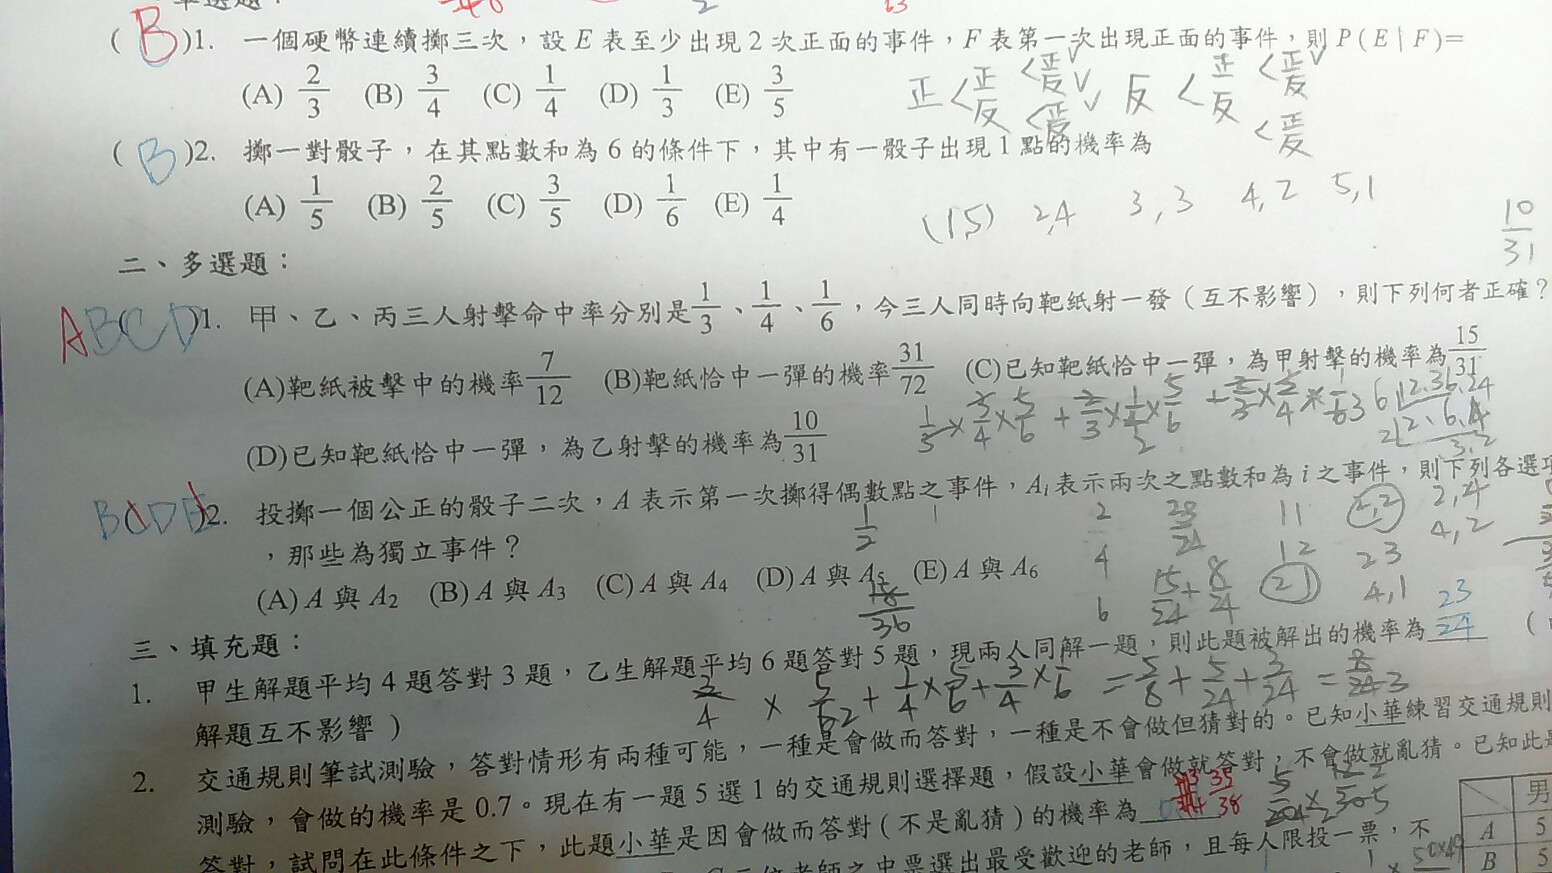 單選題：
(B)1. 一個硬幣連續擲三次，設E表至少出現2次正面的事件，F表第一次出現正面的事件，則P(E|F)=
(A) 2/3 (B) 3/4 (C) 1/4 (D) 1/3 (E) 3/5
正 < 正 反 反 < 正 反
(B)2. 擲一對骰子，在其點數和為6的條件下，其中有一骰子出現1點的機率為
(A) 1/5 (B) 2/5 (C) 3/5 (D) 1/6 (E) 1/4
(1,5) 2,4 3,3 4,2 5,1
10/31
二、多選題：
(ABCD)1. 甲、乙、丙三人射擊命中率分別是1/3、1/4、1/6，今三人同時向靶紙射一發(互不影響)，則下列何者正確？
(A)靶紙被擊中的機率7/12 (B)靶紙恰中一彈的機率31/72 (C)已知靶紙恰中一彈，為甲射擊的機率為15/31
(D)已知靶紙恰中一彈，為乙射擊的機率為10/31
1/3×3/4×5/6+2/3×1/4×5/6+2/3×3/4×1/6
(BCDE)2. 投擲一個公正的骰子二次，A表示第一次擲得偶數點之事件，Ai表示兩次之點數和為i之事件，則下列各選項
，那些為獨立事件？
(A) A與A2 (B) A與A3 (C) A與A4 (D) A與A5 (E) A與A6
1/2
18/36
2 4 6
15/24+8/24
11 12 21
2,2 23 4,1
2,4 4,2
三、填充題：
1. 甲生解題平均4題答對3題，乙生解題平均6題答對5題，現兩人同解一題，則此題被解出的機率為 23/24 (
解題互不影響)
3/4×5/6+1/4×5/6+3/4×1/6=5/8+5/24+3/24=
2. 交通規則筆試測驗，答對情形有兩種可能，一種是會做而答對，一種是不會做但猜對的。已知小華練習交通規則
測驗，會做的機率是0.7。現在有一題5選1的交通規則選擇題，假設小華會做就答對，不會做就亂猜。已知此
答對，試問在此條件之下，此題小華是因會做而答對(不是亂猜)的機率為 35/38
三位老師之中票選出最受歡迎的老師，且每人限投一票，不
男
A 5
B 5